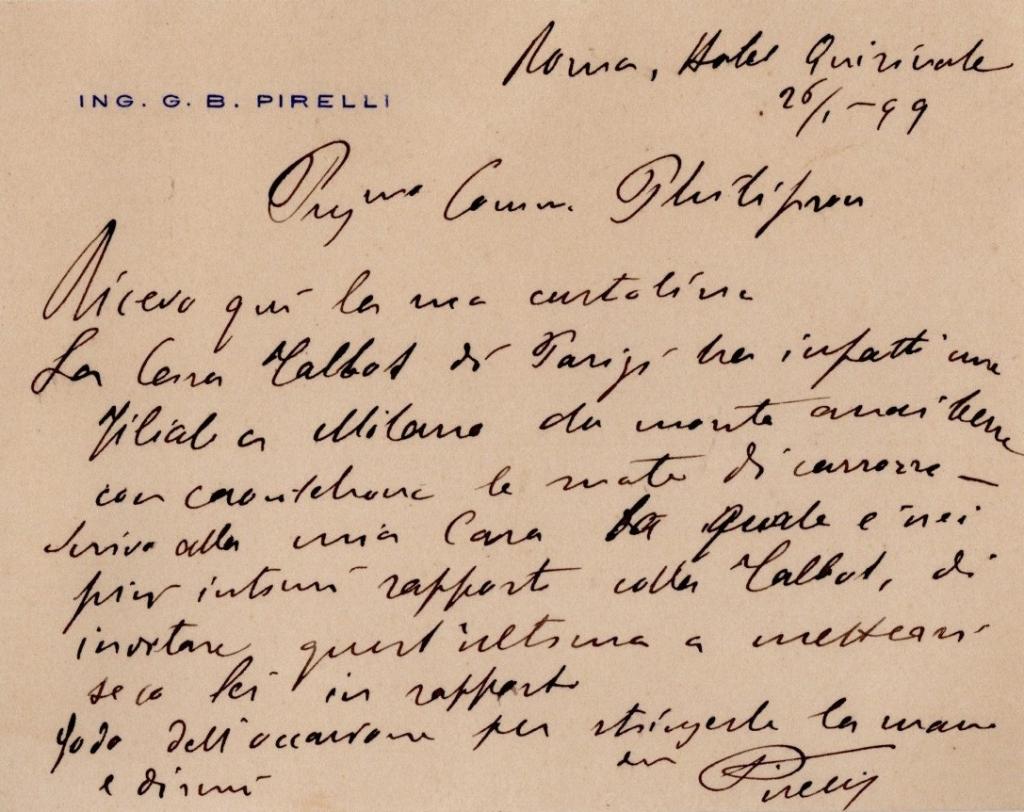 Roma, Hotel Quirinale
26/1-99
ING. G. B. PIRELLI
Pregmo Comm. Philipson
Ricevo qui la sua cartolina
La Casa Talbot di Parigi ha infatti una
filiale a Milano da monta assai bene
con caoutchouc le ruote di carrozze –
Scrivo alla mia Casa la quale è nei
più intimi rapporti colla Talbot, di
invitare quest'ultima a mettersi
seco lei in rapporto
Godo dell'occasione per stringerle la mano
e dirmi
suo Pirelli